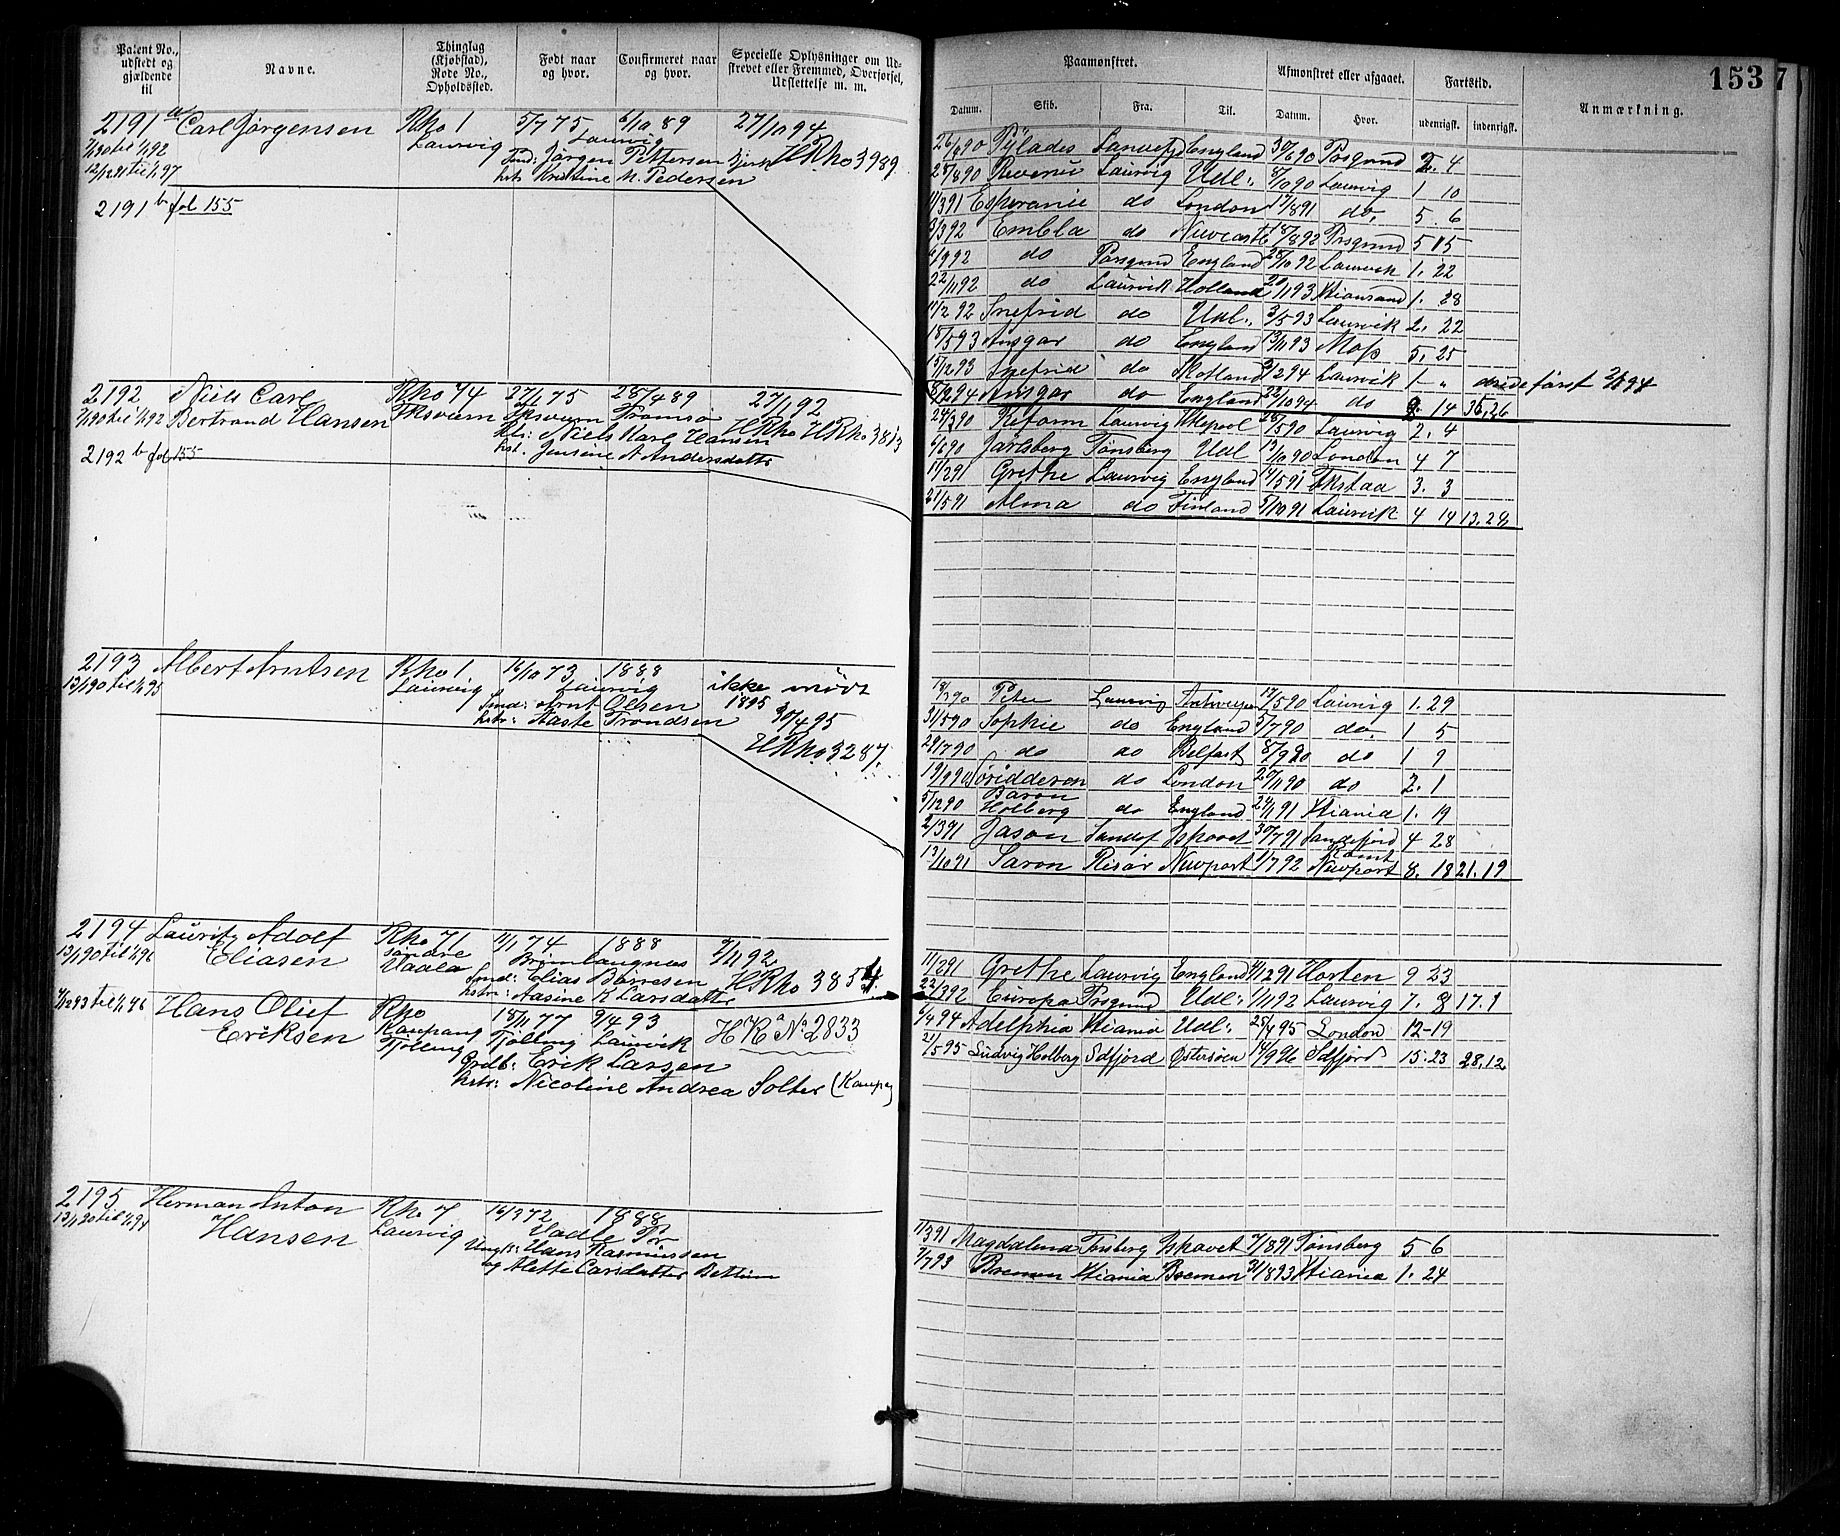 Patent No., udstedt og gjældende til
Navne.
Thinglag (Kjøbstad), Rode No., Opholdssted.
Født naar og hvor.
Confirmeret naar og hvor.
Specielle Oplysninger om Udskrevet eller Fremmed, Overførsel, Udslettelse m. m.
2191 a/ Carl Jørgensen Rho 1 5/7 75 6/10 89 27/10 94
12/12 91 til 1/1 97 Laurvig Laurvig HRho 3989
Jørgen Pettersen
Kristine M. Pedersen
2191 b fol 155
2192 Niels Carl Rho 74 28/4 89 27/1 92
7/1 90 til 1/1 92 Bertrand Hansen Tromsø HRho HRho 3813
Niels Karl Hansen
Jensine A Andersdatter
2192 b fol 155
2193 Albert Arntsen Rho 1 16/10 73 1888 ikke mødt
13/1 90 til 1/1 95 Laurvig Laurvig 1895
Smd: Arnt Olsen 30/4 95
hstr: Aaste Trondsen HRho 3287.
2194 Lauritz Adolf Rho 71 11/1 74 1888 9/11 92
13/1 90 til 1/1 96 Eliasen Søndre Brønlaugnes
Smd: Elias Børresen HRho 3854.
hstr: Aasine K Larsdatter
Hans Oluf Rho 15/11 77 9/4 93
Eriksen Kaupang Tjølling Laurvik HR No 2833
Tjølling Erik Larsen
hstr: Nicoline Andrea Solter (Kaupa
2195 Herman Anton Rho 7 16/3 72 1888
13/1 90 til 1/1 94 Hansen Laurvig Vadle Pr
Ungk: Hans Rasmussen
og Alette Carsdatter
153
Paamønstret.
Afmønstret eller afgaaet.
Fartstid.
Anmærkning.
Datum. Skib. Fra. Til. Datum. Hvor. udenrigsk. indenrigsk.
26/4 90 Pylades England 30/6 90 Porsgrund 2. 4
25/8 90 Revenu Laurvig Udl: 8/10 90 Laurvig 1 10
11/3 91 Esperance do London 17/8 91 do, 5. 6
3/3 92 Embla do Newcastle 18/8 92 Prsgrund 5 15
6/9 92 do Porsgrund England 28/10 92 Laurvik 1. 22
22/11 92 do Laurvik Holland 20/1 93 Kiansand 1. 28
11/2 92 Snefrid do Udl: 3/5 93 Laurvik 2. 22
18/5 93 Ansgar do England 13/11 93 Moss 5. 25
15/12 93 Snefrid do Skotland 2/2 94 Laurvik 1 - "
8/2 94 Ansgar do England 22/10 94 do 8. 14 35,26
24/3 90 Reform Laurvig Hlepool 28/5 90 Laurvig 2. 4
6/6 90 Jarlsberg Tønsberg Udl 13/10 90 London 4 7
11/2 91 Grethe Laurvig England 14/5 91 3. 3
21/5 91 Alma do Finland 5/10 91 Laurvik 4 14 13.28
18/3 90 Peter Laurvig Antwerpen 17/5 90 Laurvig 1. 29
31/5 90 Sophie do England 5/7 90 do, 1 5
29/7 90 do do Belfast 8/9 90 do 1 9
19/9 90 do London 20/11 90 do 2. 1
5/12 90 Baron Holberg do England 24/1 91 Kiania 1. 19
2/3 91 Jason Sandef Ishavet 30/7 91 Sandefjord 4 28
13/10 91 Saron Risør Newport 1/7 92 Newport 8. 18 21.19
11/2 91 Grethe Laurvig England 4/12 91 Horten 9 23
22/3 92 Europa Prsgrund Udl: 1/11 92 Laurvig 7. 8 17.1
6/4 94 Adelphia Kiania Udl: 25/4 95 London 12-19
21/5 95 Ludvig Holberg Sdfjord Østersøen 14/9 96 Sdfjord 15.23 28.12
1/3 91 Magdalena Tønsberg Ishavet 7/8 91 Tønsberg 5 6
7/7 93 Bremen Kiania Bremen 31/8 93 Kiania 1. 24